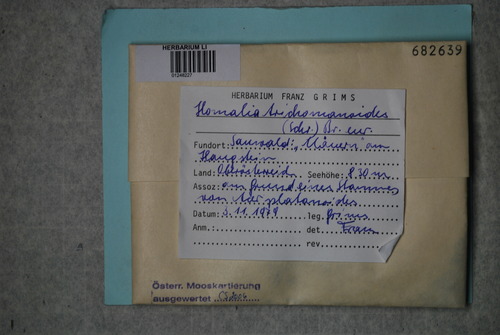 HERBARIUM LI
01248227
682639
HERBARIUM FRANZ GRIMS
Homalia trichomanoides
(Schr.) Br. eur.
Fundort: Sauwald:
Haugstein
Land: Oberösterreich Seehöhe: 830 m
Assoz: am Grund eines Stammes
von Acer platanoides
Datum: 3.11.1979 leg. Grims
Anm.: det.
rev.
Österr. Mooskartierung
ausgewertet